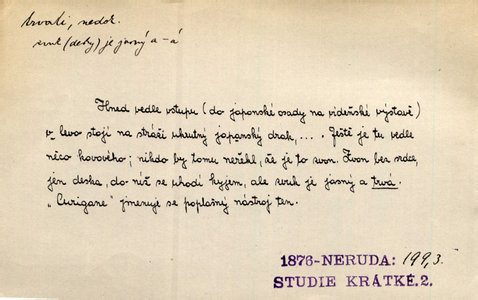 trvati, nedok.
zvuk (desky) je jasný a -á
Hned vedle vstupu (do japonské osady na vídeňské výstavě)
v levo stojí na stráži ukrutný japanský drak, ... . Ještě je tu vedle
něco kovového; nikdo by tomu neřekl, že je to zvon. Zvon bez srdce,
jen deska, do níž se uhodí kyjem, ale zvuk je jasný a trvá.
„Curigane" jmenuje se poplašný nástroj ten.
1876-NERUDA: 199,3.
STUDIE KRÁTKÉ.2.